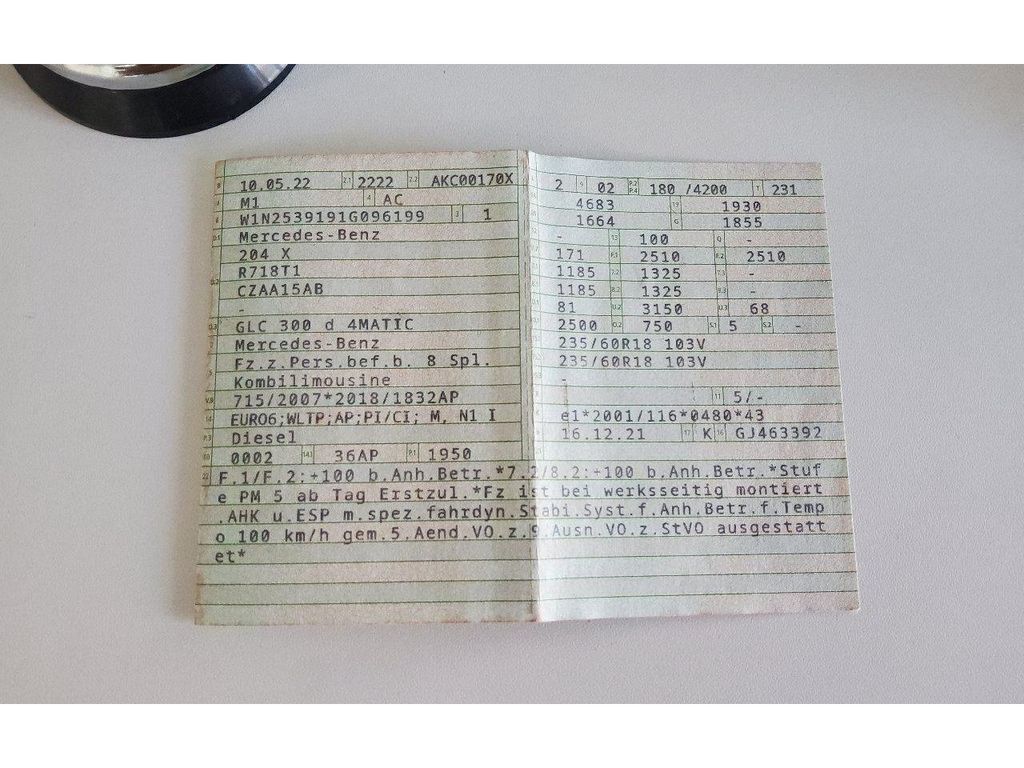 B 10.05.22 2.1 2222 2.2 AKC00170X
J M1 4 AC
E W1N2539191G096199 3 1
D.1 Mercedes-Benz
204 X
R718T1
D.2 CZAA15AB
-
D.3 GLC 300 d 4MATIC
2 Mercedes-Benz
Fz.z.Pers.bef.b. 8 Spl.
5 Kombilimousine
V.9 715/2007*2018/1832AP
14 EURO6;WLTP;AP;PI/CI; M, N1 I
P.3 Diesel
10 0002 14.1 36AP P.1 1950
2 9 02 P.2 P.4 180 /4200 T 231
4683 19 1930
1664 G 1855
- 13 100 Q -
171 F.1 2510 F.2 2510
1185 7.2 1325 7.3 -
1185 8.2 1325 8.3 -
81 U.2 3150 U.3 68
2500 O.2 750 S.1 5 S.2 -
235/60R18 103V
235/60R18 103V
-
11 5/-
K e1*2001/116*0480*43
6 16.12.21 17 K 16 GJ463392
22 F.1/F.2:+100 b.Anh.Betr.*7.2/8.2:+100 b.Anh.Betr.*Stuf
e PM 5 ab Tag Erstzul.*Fz ist bei werksseitig montiert
.AHK u.ESP m.spez.fahrdyn.Stabi.Syst.f.Anh.Betr.f.Temp
o 100 km/h gem.5.Aend.VO.z.9.Ausn.VO.z.StVO ausgestatt
et*